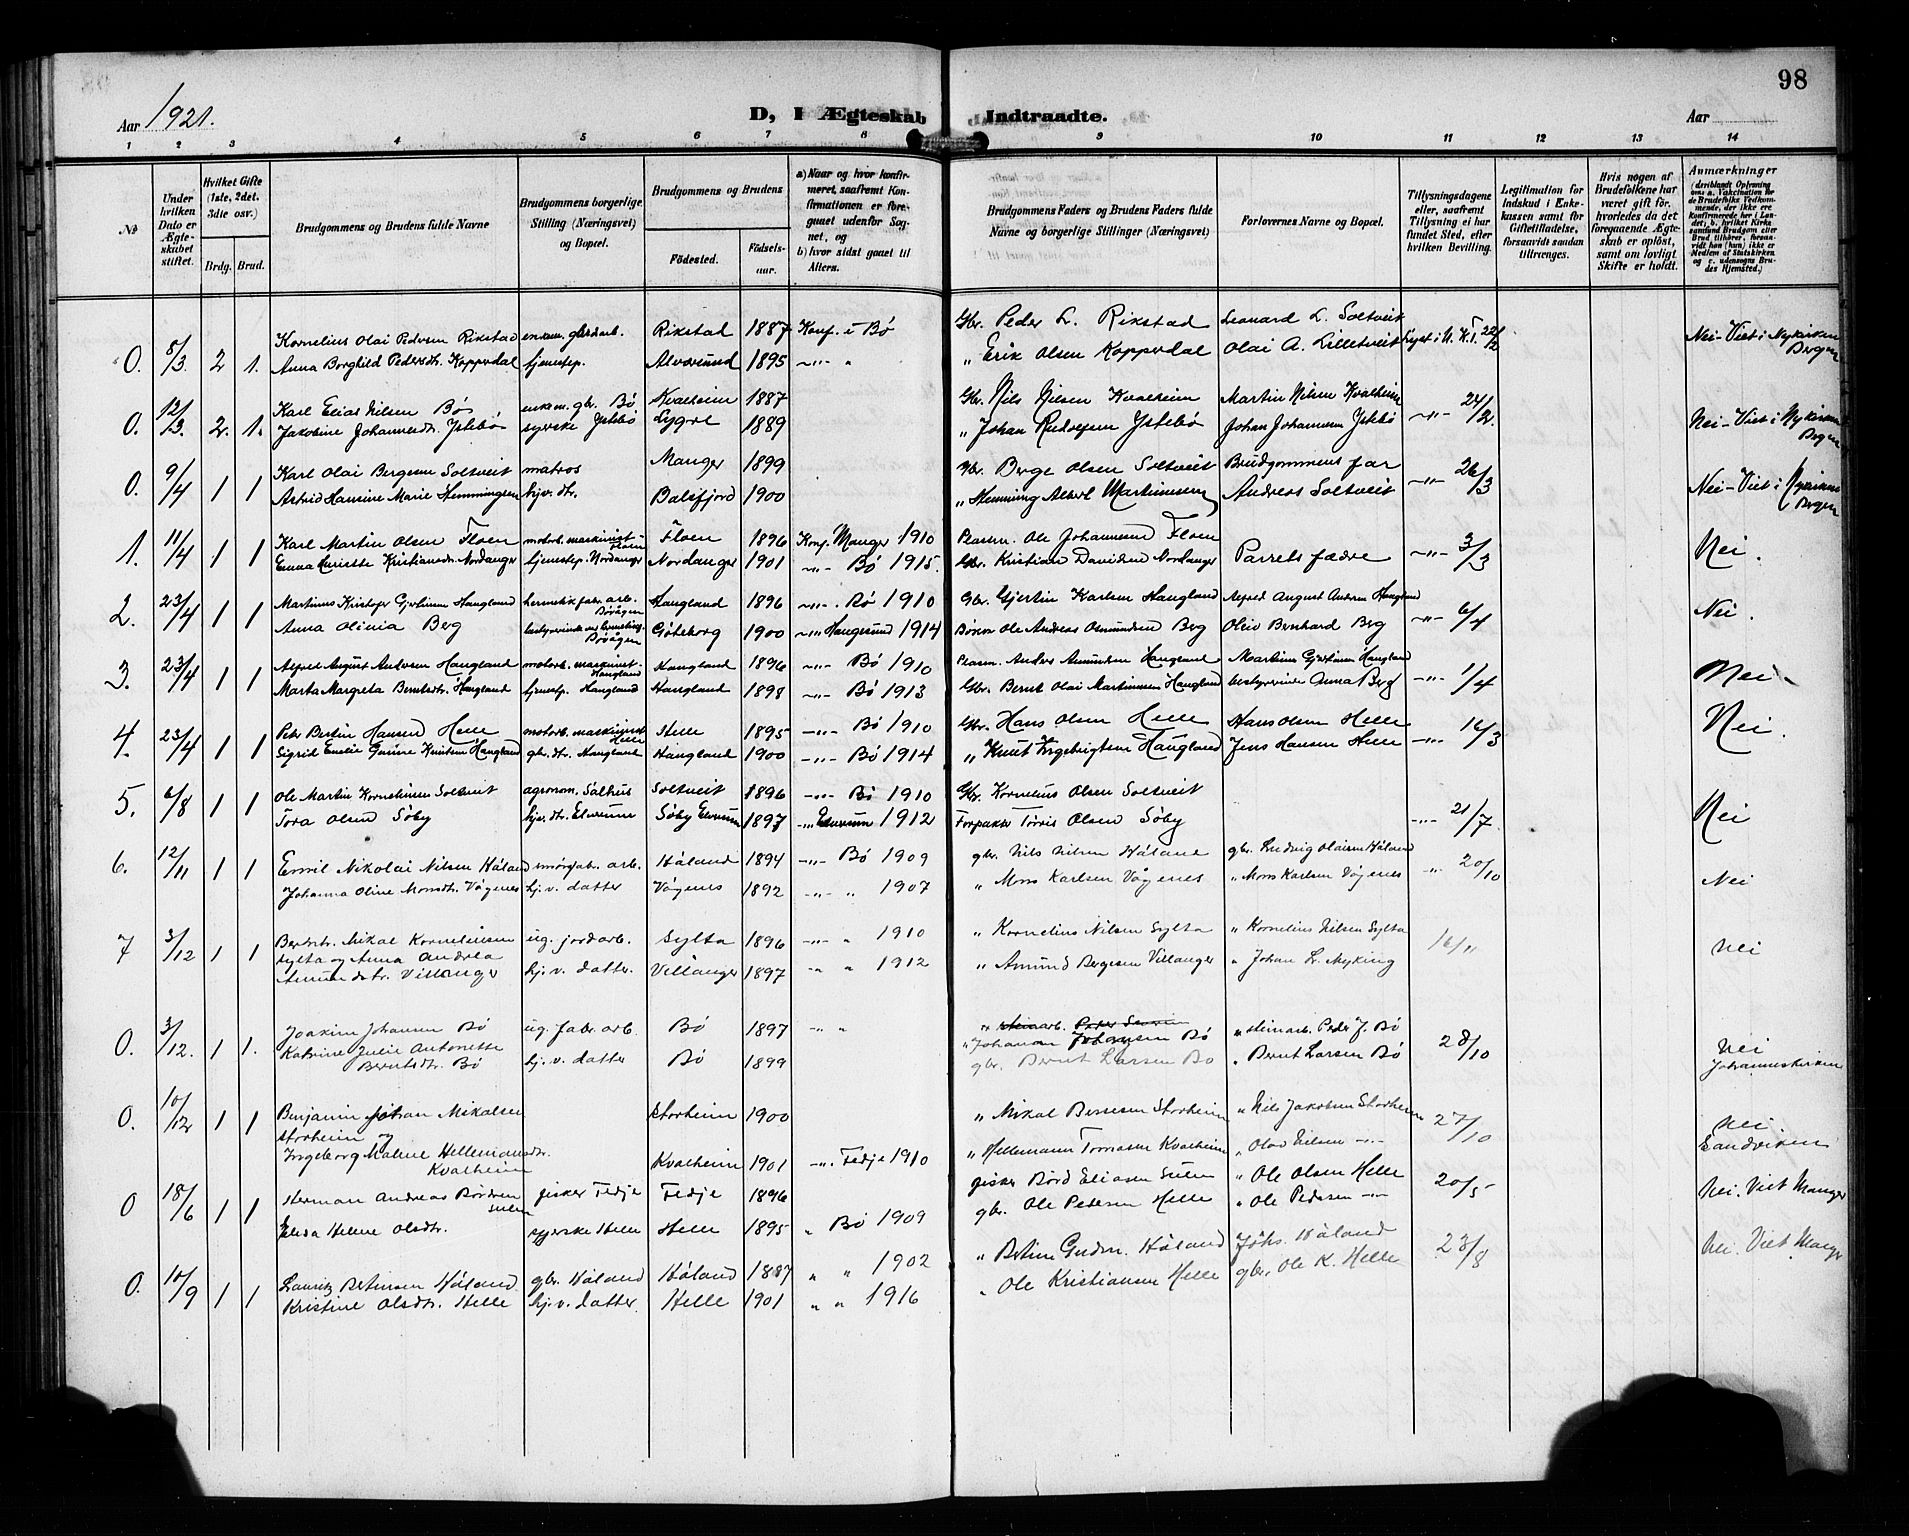 98
Aar 1921.
D, I Ægteskab Indtraadte.
Aar
1 2 3 4 5 6 7 8 9 10 11 12 13 14
No
Under hvilken Dato er Ægteskabet stiftet.
Hvilket Gifte (1ste, 2det, 3die osv.)
Brdg. Brud.
Brudgommens og Brudens fulde Navne
Brudgommens borgerlige Stilling (Næringsvei) og Bopæl.
Brudgommens og Brudens
Födested.
Födselsaar.
a) Naar og hvor konfirmeret, saafremt Konfirmationen er foregaaet udenfor Sognet, og
b) hvor sidst gaaet til Alters.
Brudgommens Faders og Brudens Faders fulde Navne og borgerlige Stillinger (Næringsvei)
Forlovernes Navne og Bopæl.
Tillysningsdagene eller, saafremt Tillysning ei har fundet Sted, efter hvilken Bevilling.
Legitimation for Indskud i Enkekassen samt for Giftetilladelse, forsaavidt saadan tiltrænges.
Hvis nogen af Brudefolkene har været gift før, hvorledes da det foregaaende Ægteskab er oplöst, samt om lovligt Skifte er holdt.
Anmærkninger
0. 8/3 2 1. Kornelius Olai Pedersen Rikstad enkem. Rikstad 1887 Konf. i Bø Gbr. Peder L. Rikstad Leonard L. Soltveit 22/2 Nei - Viet i Nykirken
Anna Borghild Pedersdtr. Kopperdal tjenestep. Alversund 1895 " " " Erik Olsen Kopperdal Olai A. Lilletveit Bergen
0. 12/3. 2. 1. Karl Elias Nilsen Bø enkem. gbr. Bø Kvalheim 1887 Gbr. Nils Nilsen Kvalheim Martin Nilsen Kvalheim 24/2. Nei - Viet i Nykirken
Jakobine Johannesdtr. Ystebø syerske Ystebø Lygre 1889 " Johan Ystebø Johan Johannesen Ystebø Bergen
0. 9/4 1 1 Karl Olai Bergesen Soltveit matros Manger 1899 Gbr. Berge Olsen Soltveit Brudgommens far 26/3 Nei - Viet i Nykirken
Astrid Hansine Marie Hemmingsen hjv. dtr. Balsfjord 1900 " Hemming Albert Martinussen Andreas Soltveit Bergen
1. 11/4 1 1 Karl Martin Olsen Floen motorb. maskinist Floen Floen 1896 Konf. Manger 1910 Plassm. Ole Johannesen Floen 3/3 Nei.
Emma Kristiansdtr. Nordanger tjenestep. Nordanger Nordanger 1901 " Bø 1915. Gbr. Kristian Davidsen Nordanger Parrets fædre
2. 23/4 1 1 Martinus Kristofer Gjertinsen Haugland hermetikfabr. arb. Bøvågen Haugland 1896 " Bø 1910 Gbr. Gjertin Karlsen Haugland Alfred August Andersen Haugland 6/4 Nei.
Anna Olinia Berg bestyrerinde Bøvågen Göteborg 1900 " Haugesund 1914 Ole Andreas Osmundsen Berg Oleiv Bernhard Berg
3. 23/4 1 1 Alfred August Andersen Haugland motorb. maskinist Haugland Haugland 1896 " Bø 1910 Plassm. Anders Amundsen Haugland Martinus Gjertinsen Haugland 1/4 Nei.
Marta Margreta Berntsdtr. Haugland tjenestp. Haugland Haugland 1898 " Bø 1913 Gbr. Bernt Olai Martinussen Haugland bestyrerinde Anna Berg
4. 23/4 1 1 Peter Bertin Hansen Helle motorb. maskinist Helle Helle 1895 " Bø 1910 Gbr. Hans Olsen Helle Hans Olsen Helle 16/3 Nei.
Sigrid Emelie Gurine Knutsen Haugland gbr. dtr. Haugland Haugland 1900 " Bø 1914 " Knut Ingebrigtsen Haugland Jens Hansen Helle
5. 6/8 1 1 Ole Martin Kornelinsen Soltveit agronom. Salhus Soltveit 1896 " Bø 1910 Gbr. Kornelius Olsen Soltveit 21/7 Nei
Tora Olsen Søby hjv. dtr. Elverum Søby Elverum 1897 " Elverum 1912 Forpakter Torris Olsen Søby
6. 12/11 1 1 Emil Nikolai Nilsen Håland smørfabr. arb. Håland 1894 " Bø 1909 gbr. Nils Nilsen Håland gbr. Ludvig Olaisen Håland 20/10 Nei
Johanna Oline Monsdtr. Vågenes hj. v. datter Vågenes 1892 " " 1907 " Mons Karlsen Vågenes " Mons Karlsen Vågenes
7 3/12 1 1 Mikal Kornelinsen ug. jordarb. Sylta 1896 " " 1910 " Kornelius Nilsen Sylta " Kornelius Nilsen Sylta 16/11 Nei
Sylta og Anna Andrea
Amundsdtr. Villanger hj. v. datter. Villanger 1897 " " 1912 " Amund Bergesen Villanger " Johan L. Myking
0. 3/12. 1 1. Joakim Johansen Bø ug. fabr. arb. Bø 1897 " " " steinarb. " steinarb. Peder J. Bø 28/10 Nei
Katrine Julie Antonette " Johannes Johansen Bø
Berntsdtr. Bø hj. v. datter Bø 1899 gbr. Bernt Larsen Bø " Bernt Larsen Bø Johanneskirken
0. 10/12 1 1 Benjamin Johan Mikalsen Storheim 1900 " Mikal Bersesen Storheim " Nils Jakobsen Storheim 27/10 Nei
Storheim og Sandviken
Ingeborg Malene Hellemansdtr.
Kvalheim Kvalheim 1901 " Fedje 1910 " Hellemann Tomassen Kvalheim " Olav Nilsen "
0 18/6 1 1 Herman Andreas Bårdsen fisker Fedje Fedje 1896 fisker Bård Eliasen Sulen " Ole Olsen Helle 20/5 Nei. Viet Manger
Sulen
Elida Helene Olsdtr. syerske Helle Helle 1895 " Bø 1909 gbr. Ole Petersen Helle " Ole Pedersen "
0. 10/9 1 1 Lauritz Betinsen Håland gbr. Håland Håland 1887 " " 1902 " Betin Gudm. Håland Johs. Håland 23/8 Nei. Viet Manger
Kristine Olsdtr. Helle hj. v. datter Helle 1901 " " 1916 " Ole Kristiansen Helle gbr. Ole K. Helle